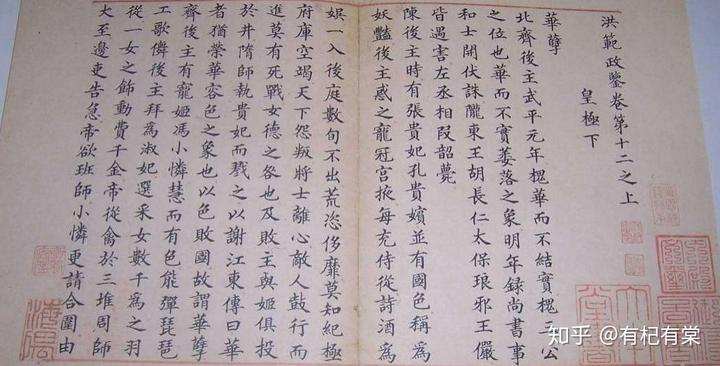 洪範政鑒卷第十二之上
皇極下
華孽
北齊後主武平元年槐華而不結實槐三公
之位也華而不實萎落之象明年録尚書事
和士開伏誅隴東王胡長仁太保琅邪王儼
皆遇害左丞相段韶薨
陳後主時有張貴妃孔貴嬪並有國色稱為
妖豔後主惑之寵冠宫掖每充侍從詩酒為
娯一入後庭數旬不出荒恣侈靡莫知紀極
府庫空竭天下怨叛將士離心敵人鼓行而
進莫有死戰女德之咎也及敗主與姬俱投
於井隋師執貴妃而戮之以謝江東傳曰華
者猶榮華容色之象也以色敗國故謂華孽
齊後主有寵姬馮小憐慧而有色能彈琵琶
工歌儛後主拜為淑妃選采女數千為之羽
從一女之飾動費千金帝從禽於三堆周師
大至邊吏告急帝欲班師小憐更請合圍由
知乎 @有杞有棠